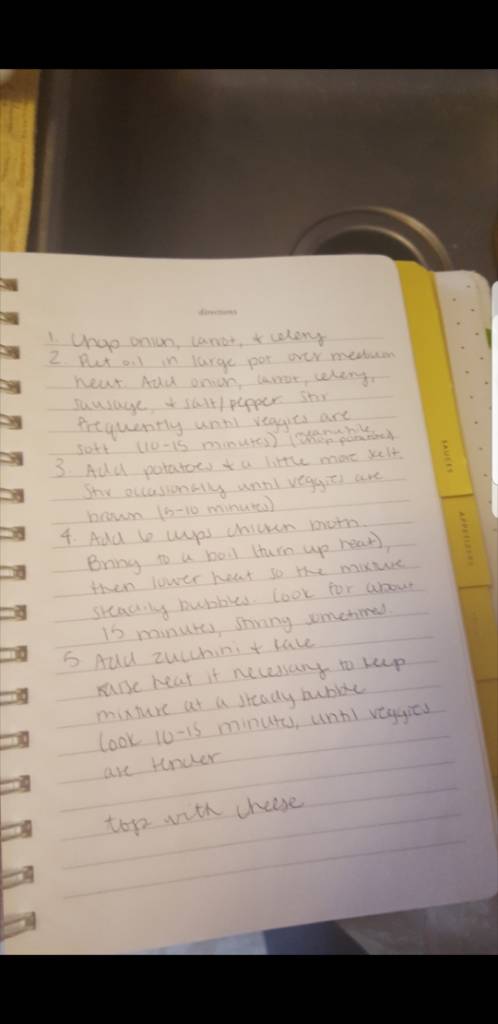 directions
1. Chop onion, carrot, + celery
2. Put oil in large pot over medium
heat. Add onion, carrot, celery,
sausage, + salt/pepper. Stir
frequently until veggies are
soft (10-15 minutes) (meanwhile, chop potatoes)
3. Add potatoes + a little more salt.
Stir occasionally until veggies are
brown (5-10 minutes)
4. Add 6 cups chicken broth.
Bring to a boil (turn up heat),
then lower heat so the mixture
steadily bubbles. Cook for about
15 minutes, stirring sometimes.
5. Add zucchini + kale
raise heat if necessary to keep
mixture at a steady bubble
Cook 10-15 minutes, until veggies
are tender
top with cheese
SAUCES
APPETIZERS